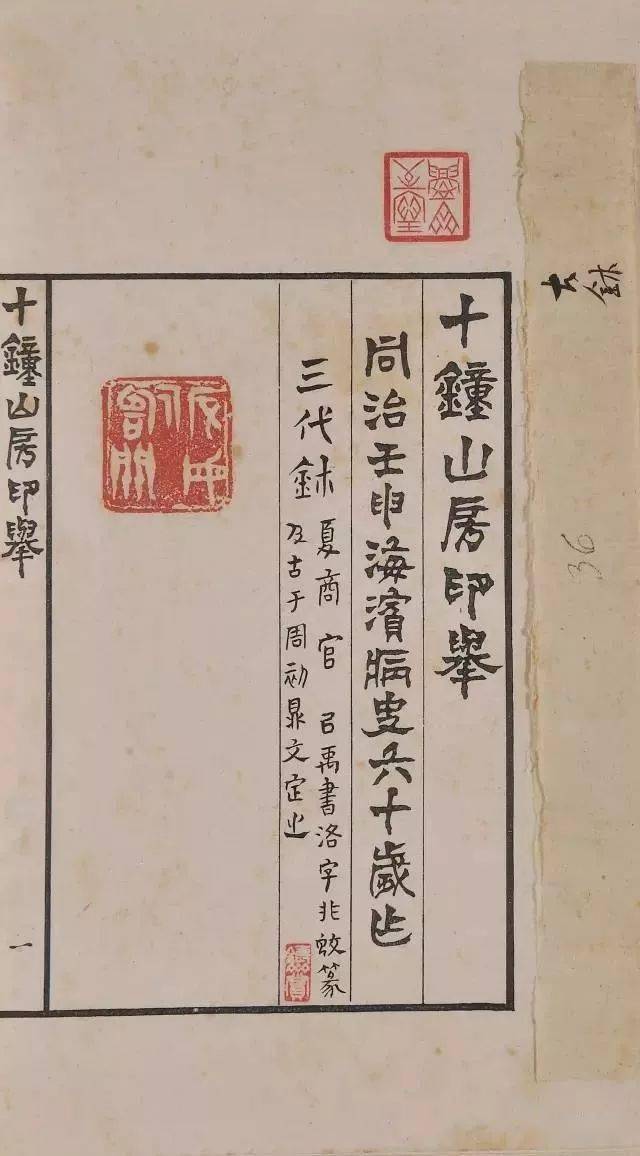 十鐘山房印舉
同治壬申海濱病叟六十歲作
三代鉥 夏商官 㠯禹書洛字非蛟篆
及古于周初鼎文定之
十鐘山房印舉
一
古鉥
36